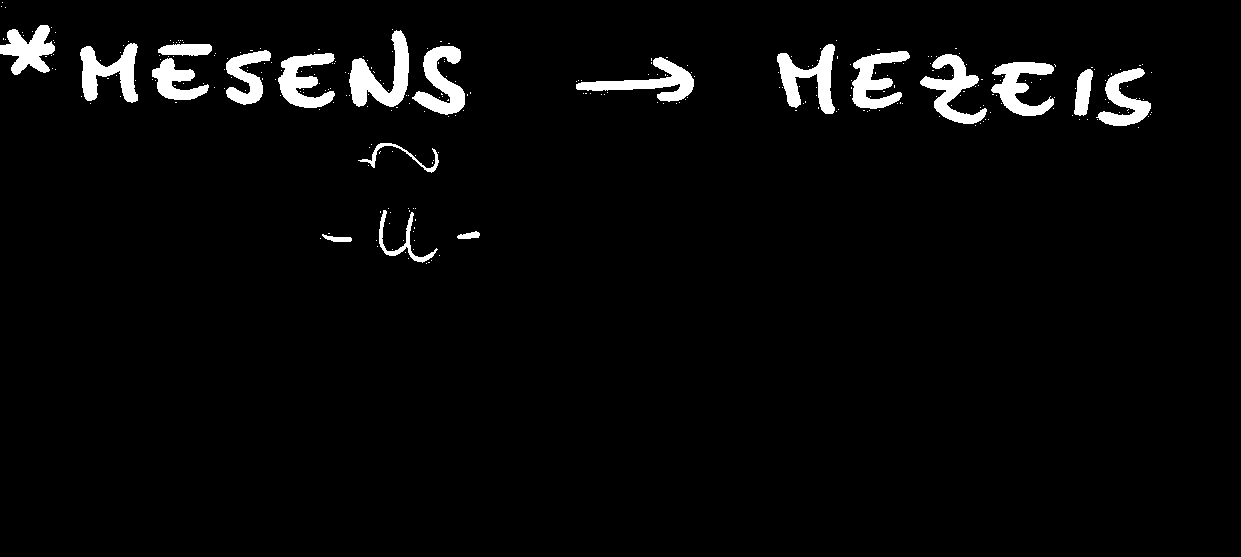 *MĒSENS → MEZEIS
~
-u-